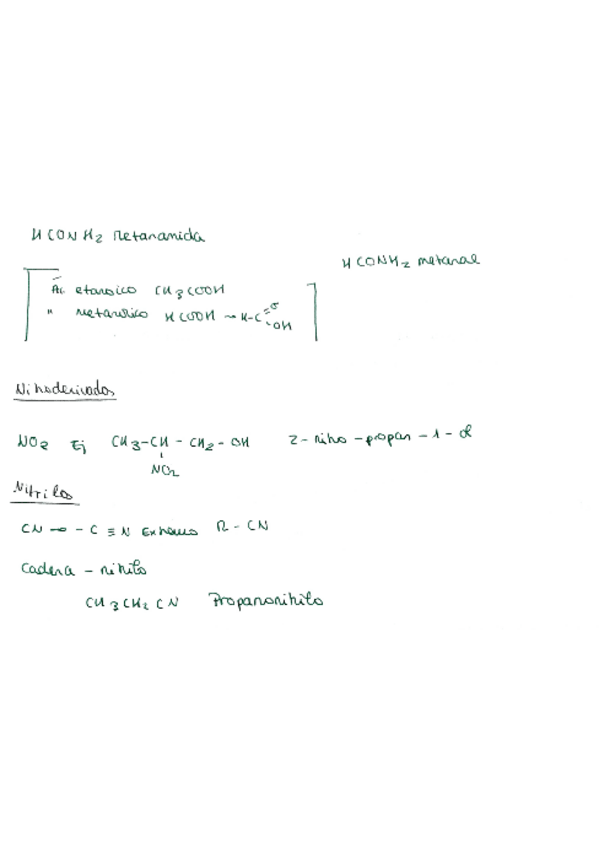 HCONH2 Metanamida
HCONH2 metanal
Ác etanoico CH3COOH
" metanoico HCOOH → H-C=O -OH
Nitroderivados
NO2 Ej CH3-CH-CH2-OH 2-nitro-propan-1-ol
NO2
Nitrilos
CN → -C≡N Extremo R-CN
Cadena - nitrilo
CH3CH2CN Propanonitrilo